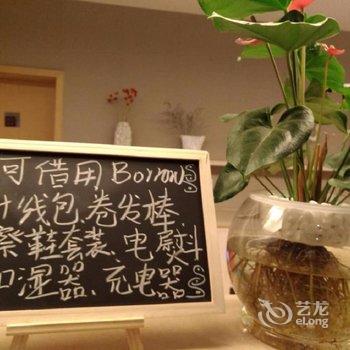 可借用Borrow
针线包.卷发棒
擦鞋套装、电熨斗
加湿器、充电器
艺龙
eLong.com